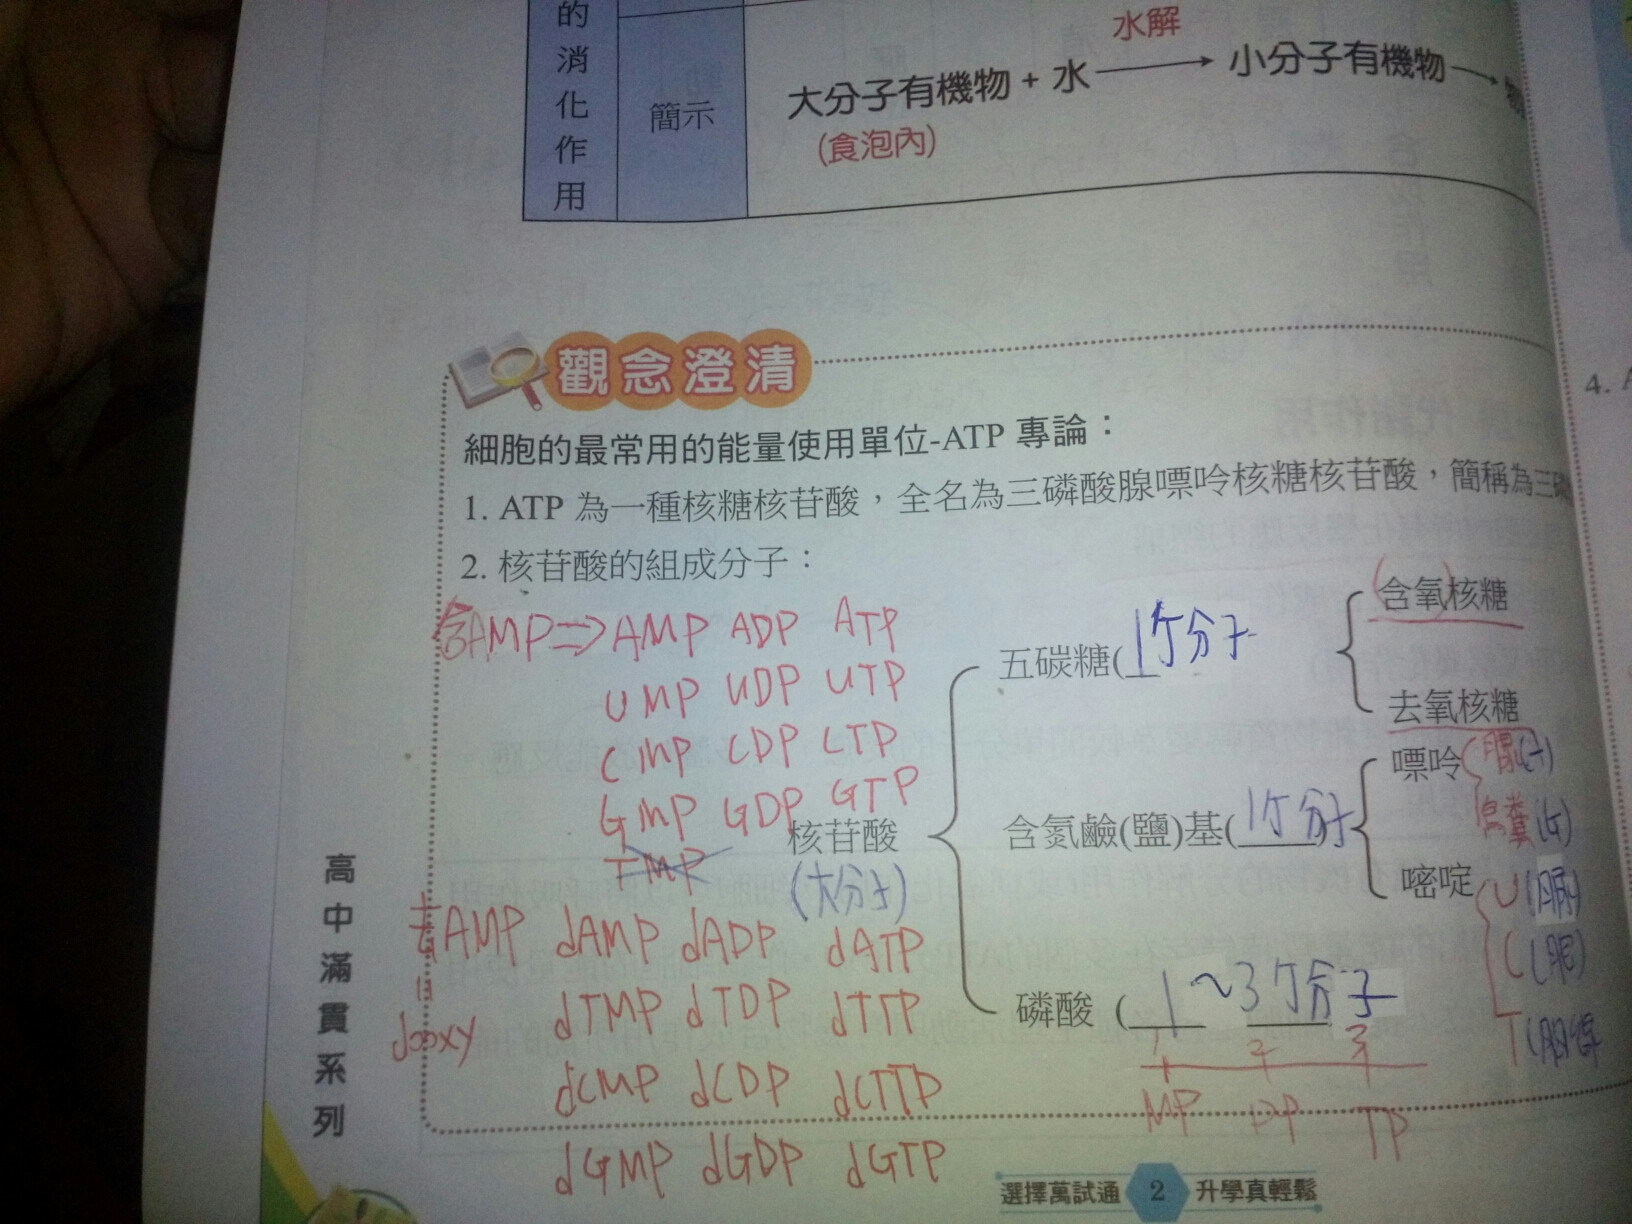 的消化作用
簡示
水解
大分子有機物 + 水 → 小分子有機物 →
(食泡內)
觀念澄清
細胞的最常用的能量使用單位-ATP 專論：
1. ATP 為一種核糖核苷酸，全名為三磷酸腺嘌呤核糖核苷酸，簡稱為三磷
2. 核苷酸的組成分子：
含AMP⇒AMP ADP ATP
UMP UDP UTP
CMP CDP CTP
GMP GDP GTP
TMP
去AMP dAMP dADP dATP
dTMP dTDP dTTP
dCMP dCDP dCTTP
dGMP dGDP dGTP
核苷酸
(大分子)
五碳糖(1個分子
(含氧)核糖
去氧核糖
含氮鹼(鹽)基(1個分子
嘌呤
腺
鳥糞(G)
嘧啶
U(
C(
T(
磷酸 (1～3個分子
1 2 3
MP DP TP
4.
高中滿貫系列
選擇萬試通 2 升學真輕鬆